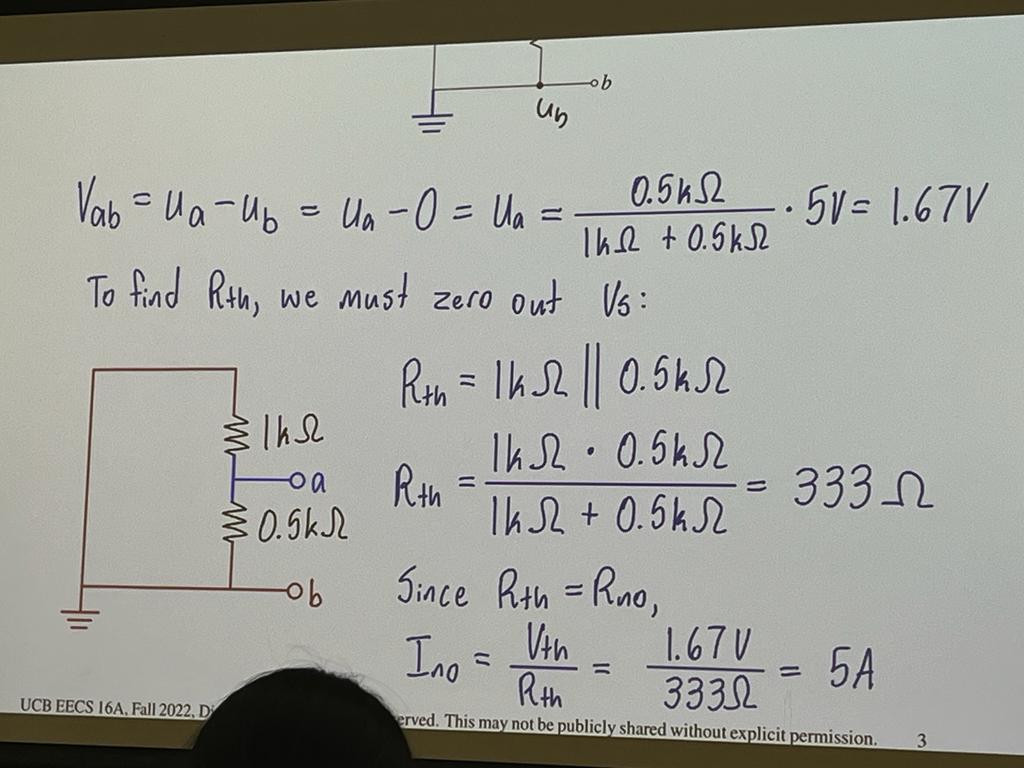 b
u_b
V_ab = u_a - u_b = u_a - 0 = u_a = 0.5kΩ / (1kΩ + 0.5kΩ) · 5V = 1.67V
To find R_th, we must zero out V_s:
R_th = 1kΩ || 0.5kΩ
1kΩ
a
0.5kΩ
b
R_th = (1kΩ · 0.5kΩ) / (1kΩ + 0.5kΩ) = 333Ω
Since R_th = R_no,
I_no = V_th / R_th = 1.67V / 333Ω = 5A
UCB EECS 16A, Fall 2022, erved. This may not be publicly shared without explicit permission. 3